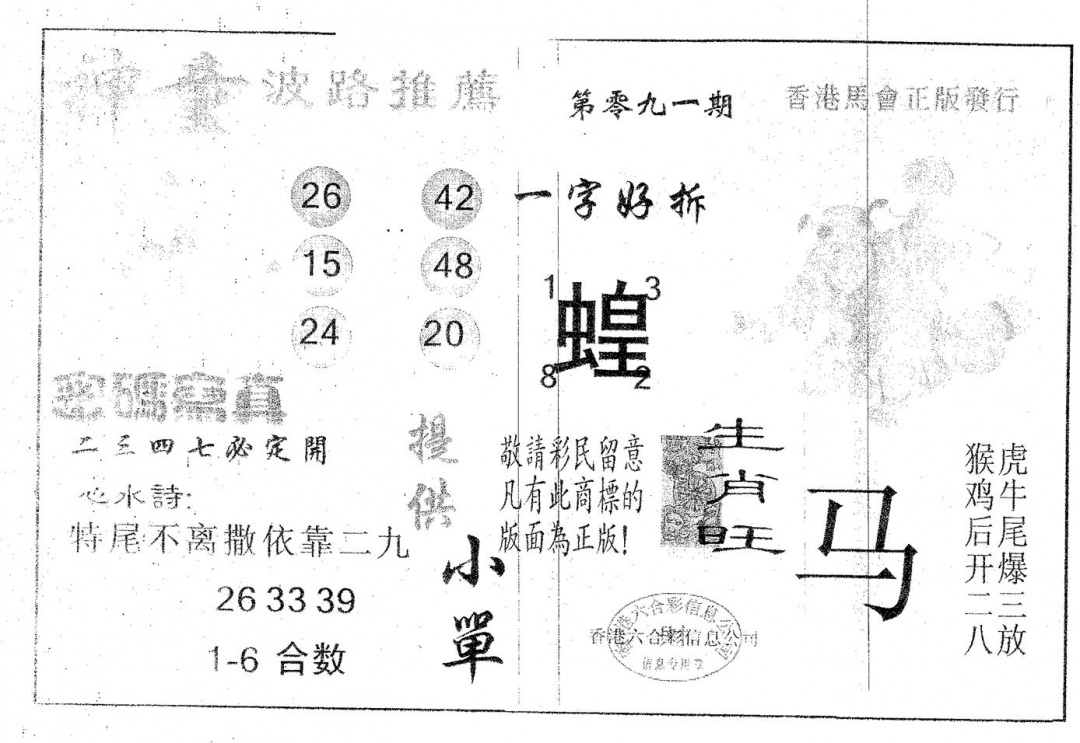 神童 波路推薦
第零九一期
香港馬會正版發行
26 42
15 48
24 20
一字好拆
1 3
蝗
8 2
密碼寫真
二三四七必定開
心水詩:
特尾不离撒依靠二九
26 33 39
1-6 合数
提供
小單
敬請彩民留意
凡有此商標的
版面為正版!
生肖旺
马
虎牛尾爆三放
猴鸡后开二八
香港六合彩信息公司
香港六合彩信息公司
信息专用章